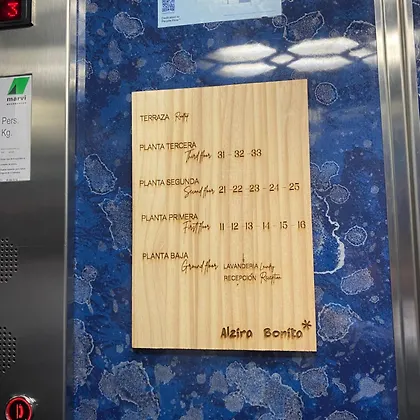 3
marvi
Pers.
Kg.
TERRAZA Rooftop
PLANTA TERCERA
Third floor 31 - 32 - 33
PLANTA SEGUNDA
Second floor 21 - 22 - 23 - 24 - 25
PLANTA PRIMERA
First floor 11 - 12 - 13 - 14 - 15 - 16
PLANTA BAJA
Ground floor LAVANDERIA Laundry
RECEPCIÓN Reception
Alzira Bonita*